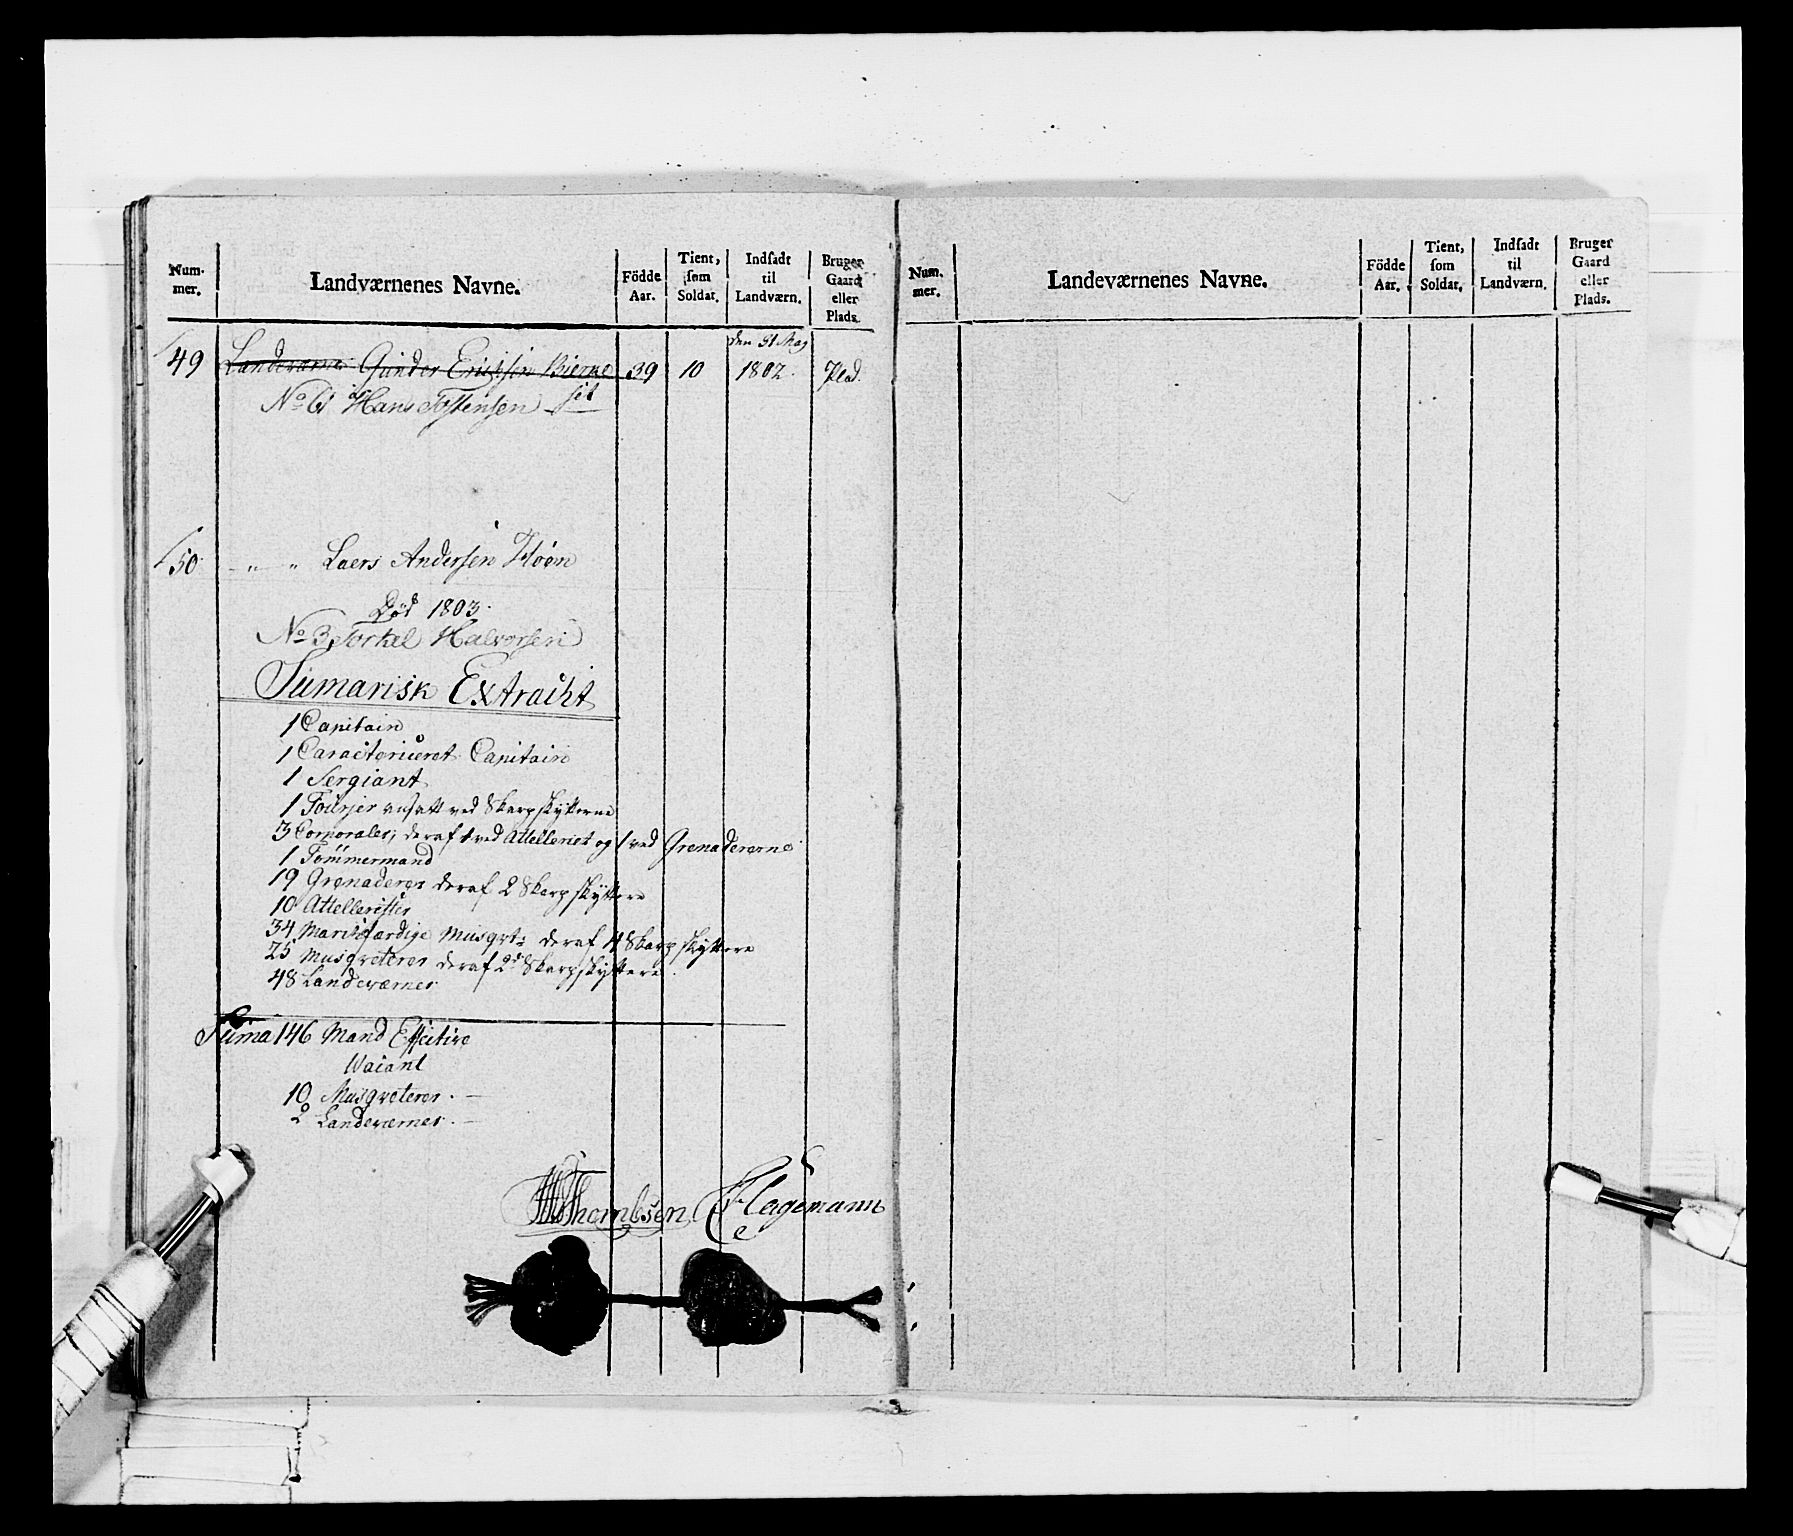 Num-
mer.
Landværnenes Navne.
Födde
Aar.
Tient,
som
Soldat.
Indsadt
til
Landværn.
Bruger
Gaard
eller
Plads.
49 Landeværner Gunder Erichsen Bierke 39 10 den 1 May 1802. Plad.
No 61 Hans Tostensen
50 " " Laers Andersen
Död 1803.
No 3 Torkel Halvorsen
Sumarisk Extracht
1 Capitain
1 Caracteriseret Capitain
1 Sergiant
1 Fourier ansatt ved Skarpskytterne
3 Corporaler, deraf 1 ved Attelleriet og 1 ved Grenadererne
1 Tömmermand
19 Grenaderer deraf 2 Skarpskyttere
10 Attellerister
34 Marisfærdige Musqvt: deraf 4 Skarpskyttere
25 Musqveterer deraf 2de Skarpskyttere
48 Landeværner
Suma 146 Mand Effective
Vacant
10 Musqveterer. —
2 Landeværner. —
Thombsen Hagemann
Num.
mer.
Landeværnenes Navne.
Födde
Aar.
Tient,
som
Soldat.
Indsadt
til
Landværn.
Bruger
Gaard
eller
Plads.